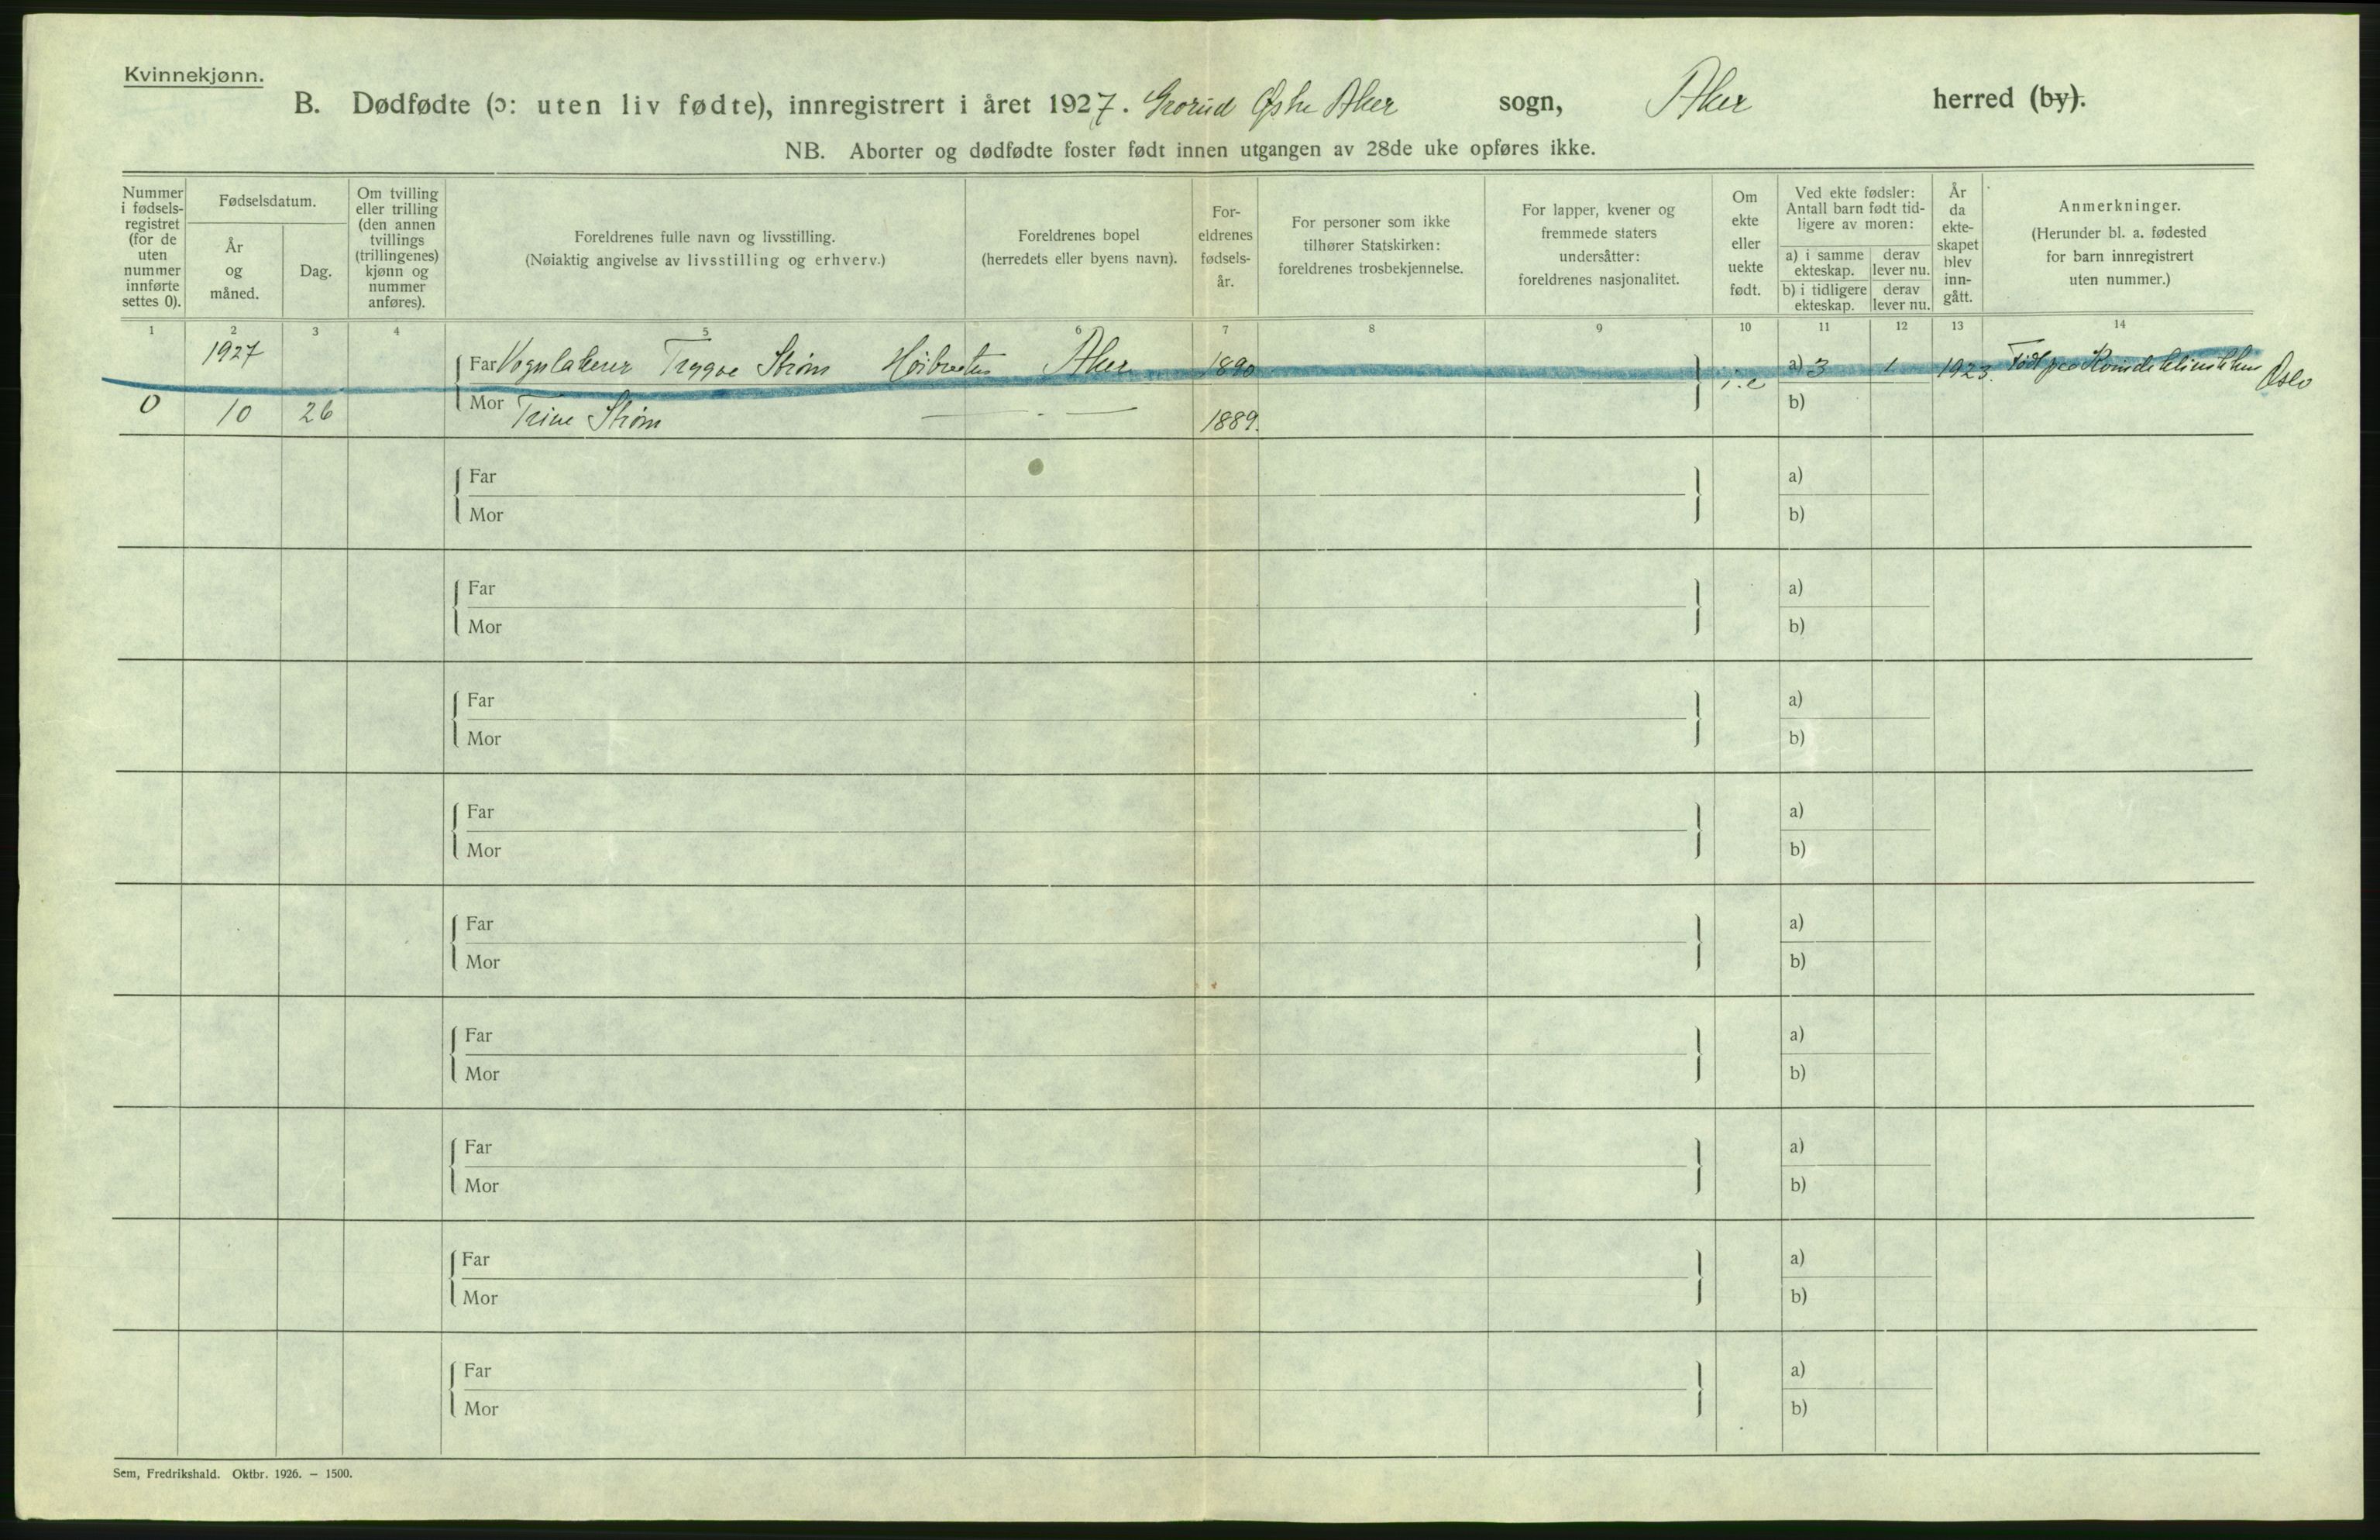 Kvinnekjønn.
B. Dødfødte (ɔ: uten liv fødte), innregistrert i året 1927. Grorud Østre Aker sogn, Aker herred (by).
NB. Aborter og dødfødte foster født innen utgangen av 28de uke opføres ikke.
Nummer i fødsels-registret (for de uten nummer innførte settes 0).
Fødselsdatum.
År og måned.
Dag.
Om tvilling eller trilling (den annen tvillings (trillingenes) kjønn og nummer anføres).
Foreldrenes fulle navn og livsstilling.
(Nøiaktig angivelse av livsstilling og erhverv.)
Foreldrenes bopel
(herredets eller byens navn).
For-eldrenes fødsels-år.
For personer som ikke tilhører Statskirken: foreldrenes trosbekjennelse.
For lapper, kvener og fremmede staters undersåtter: foreldrenes nasjonalitet.
Om ekte eller uekte født.
Ved ekte fødsler: Antall barn født tid-ligere av moren:
a) i samme ekteskap. derav lever nu.
b) i tidligere ekteskap. derav lever nu.
År da ekte-skapet blev inn-gått.
Anmerkninger.
(Herunder bl. a. fødested for barn innregistrert uten nummer.)
1 2 3 4 5 6 7 8 9 10 11 12 13 14
1927 Far Vognlakerer Trygve Strøm Høibråten Aker 1890 i.e a) 3 1 1923. Født på Kvindeklinikken Oslo
0 10 26 Mor Trine Strøm — · — 1889. b)
Far a)
Mor b)
Far a)
Mor b)
Far a)
Mor b)
Far a)
Mor b)
Far a)
Mor b)
Far a)
Mor b)
Far a)
Mor b)
Far a)
Mor b)
Far a)
Mor b)
Sem, Fredrikshald. Oktbr. 1926. — 1500.